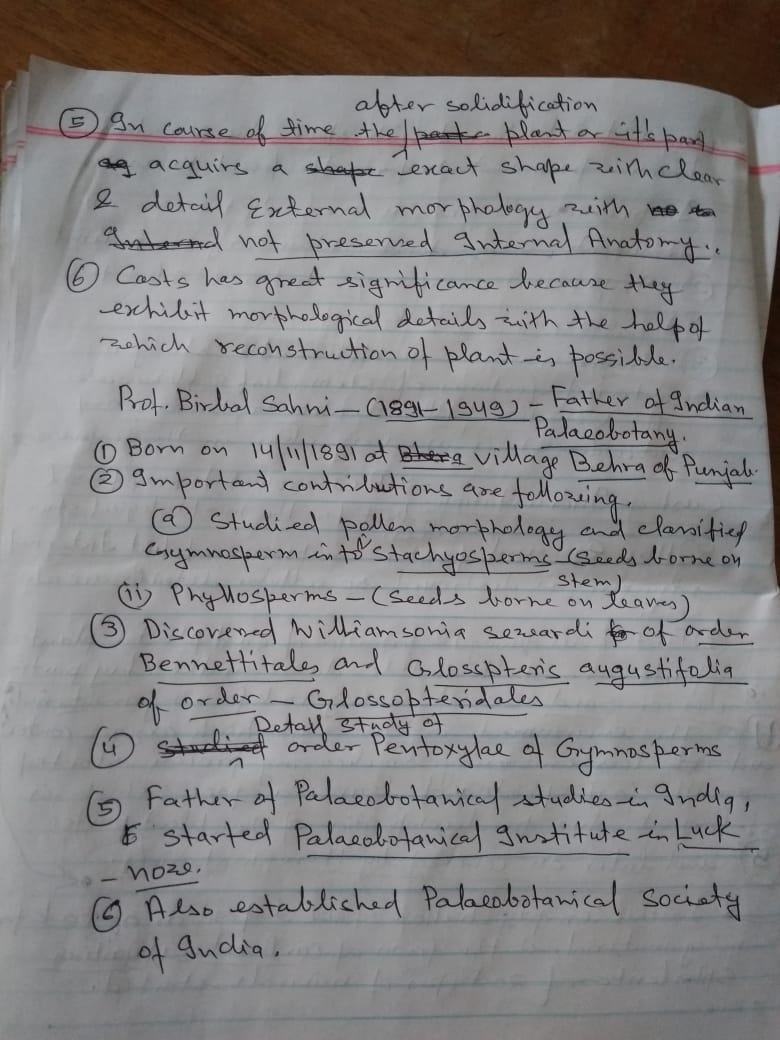 after solidification
⑤ In course of time the plant or it's part
acquirs a exact shape with clear
& detail External morphology with
not preserved Internal Anatomy..
⑥ Casts has great significance because they
exhibit morphological details with the help of
which reconstruction of plant is possible.
Prof. Birbal Sahni – (1891–1949) – Father of Indian
Palaeobotany.
① Born on 14/11/1891 at village Behra of Punjab.
② Important contributions are following.
(a) Studied pollen morphology and classified
Gymnosperm into Stachyosperms – (Seeds borne on
stem)
(ii) Phyllosperms – (Seeds borne on leaves)
③ Discovered Williamsonia sewardi of order
Bennettitales and Glosspteris augustifolia
of order – Glossopteridales
Detail study of
④ order Pentoxylae of Gymnosperms
⑤ Father of Palaeobotanical studies in India,
started Palaeobotanical Institute in Luck
– now.
⑥ Also established Palaeobotanical Society
of India.